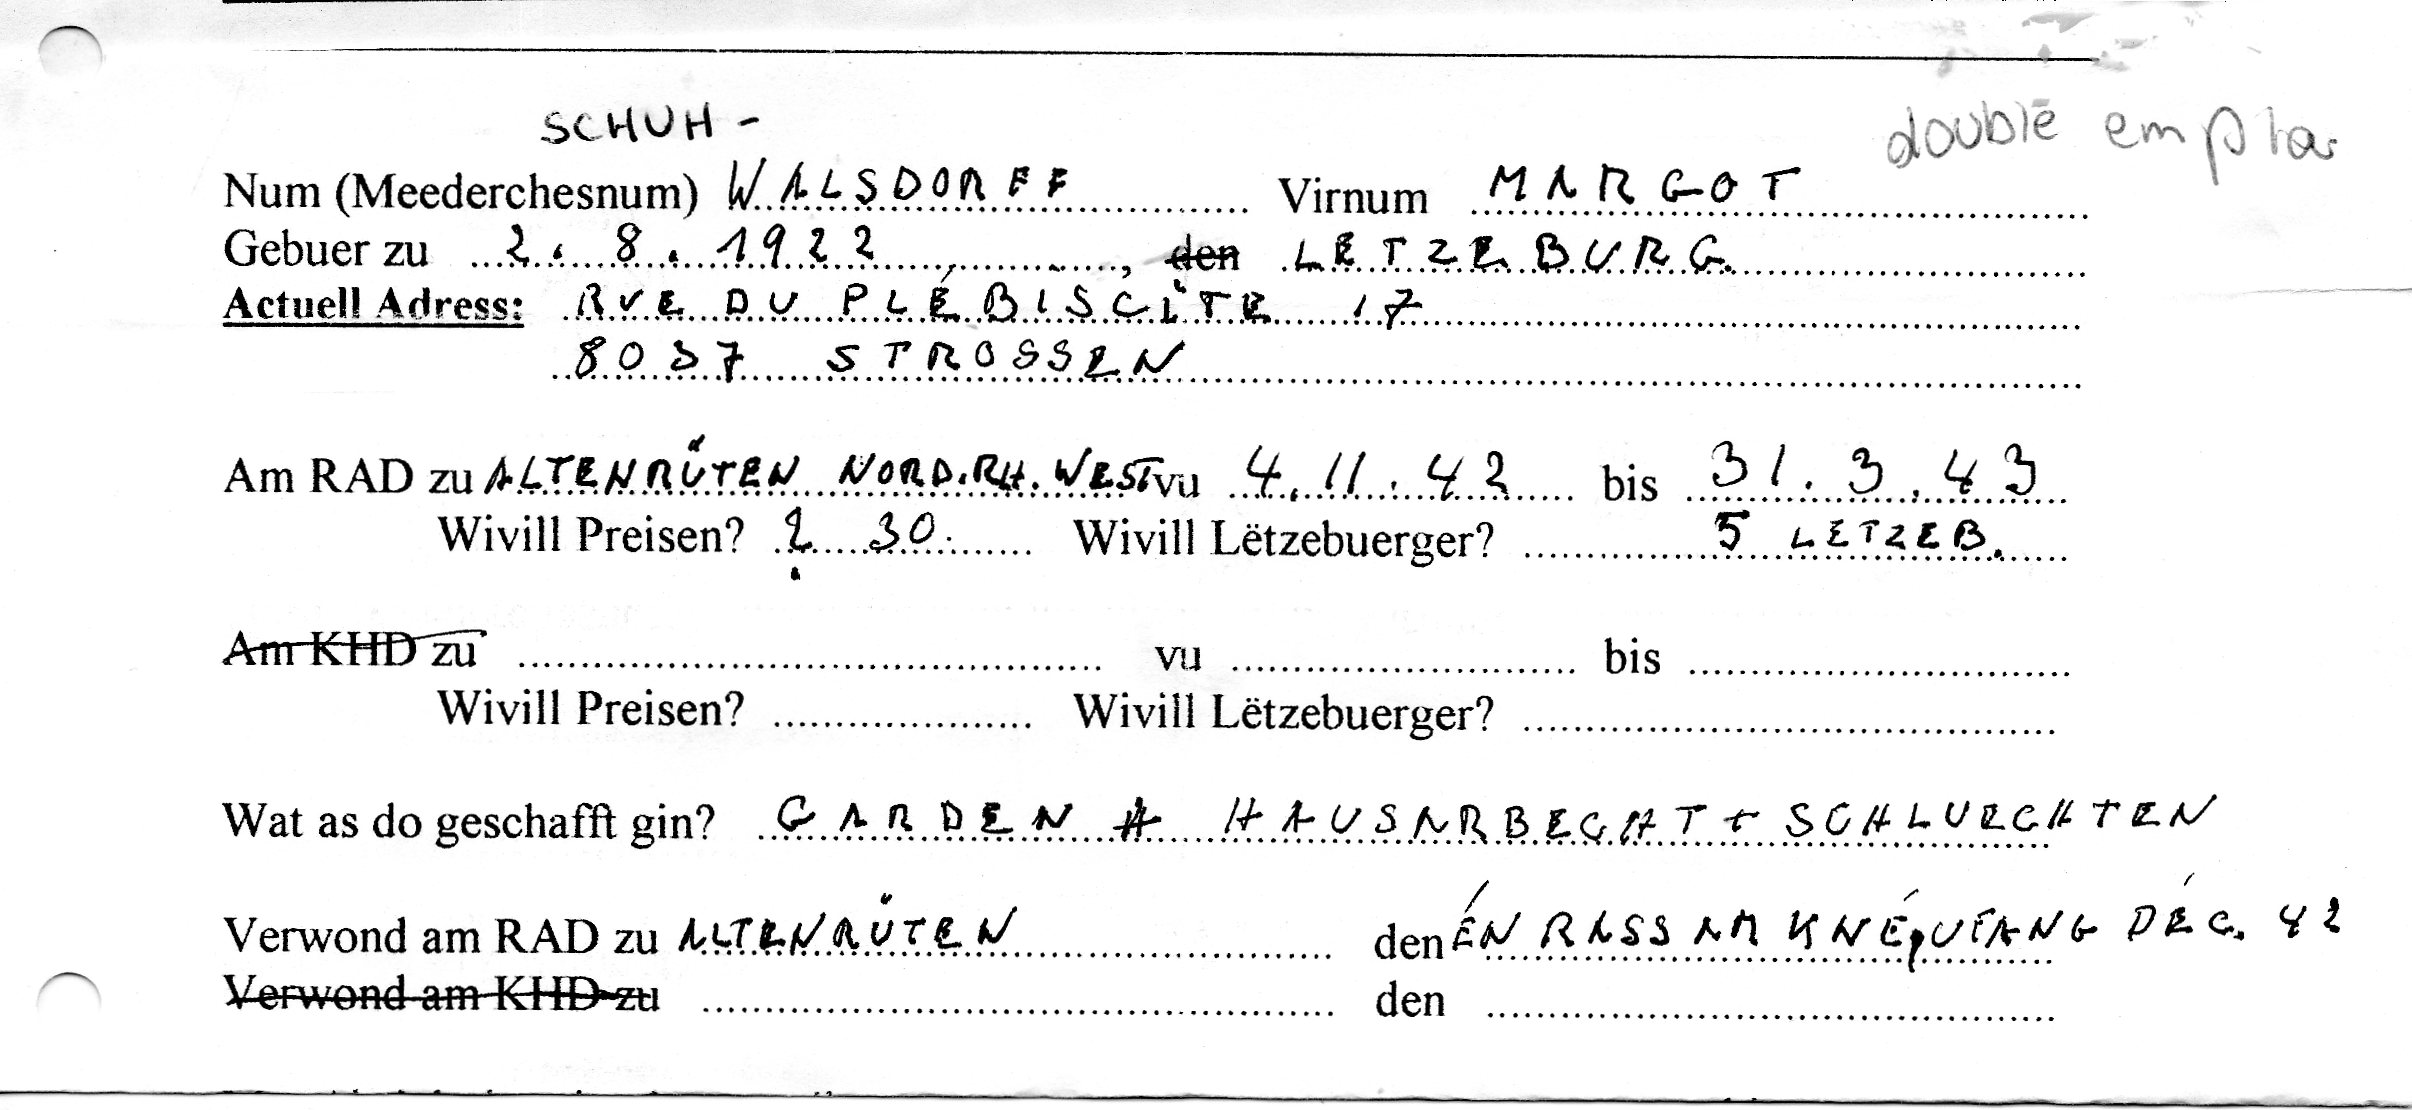 double emploi
SCHUH -
Num (Meederchesnum) WALSDORFF Virnum MARGOT
Gebuer zu 2. 8. 1922, den LETZEBURG.
Actuell Adress: RUE DU PLÉBISCITE 17
8037 STROSSEN
Am RAD zu ALTENRÜTEN NORD.RH.WEST vu 4.11.42 bis 31.3.43
Wivill Preisen? ? 30. Wivill Lëtzebuerger? 5 LETZEB.
Am KHD zu vu bis
Wivill Preisen? Wivill Lëtzebuerger?
Wat as do geschafft gin? GARDEN HAUSARBECHT + SCHLUECHTEN
Verwond am RAD zu ALTENRÜTEN den ÉN RASS AM KNÉ, UFANG DÉC. 42
Verwond am KHD zu den